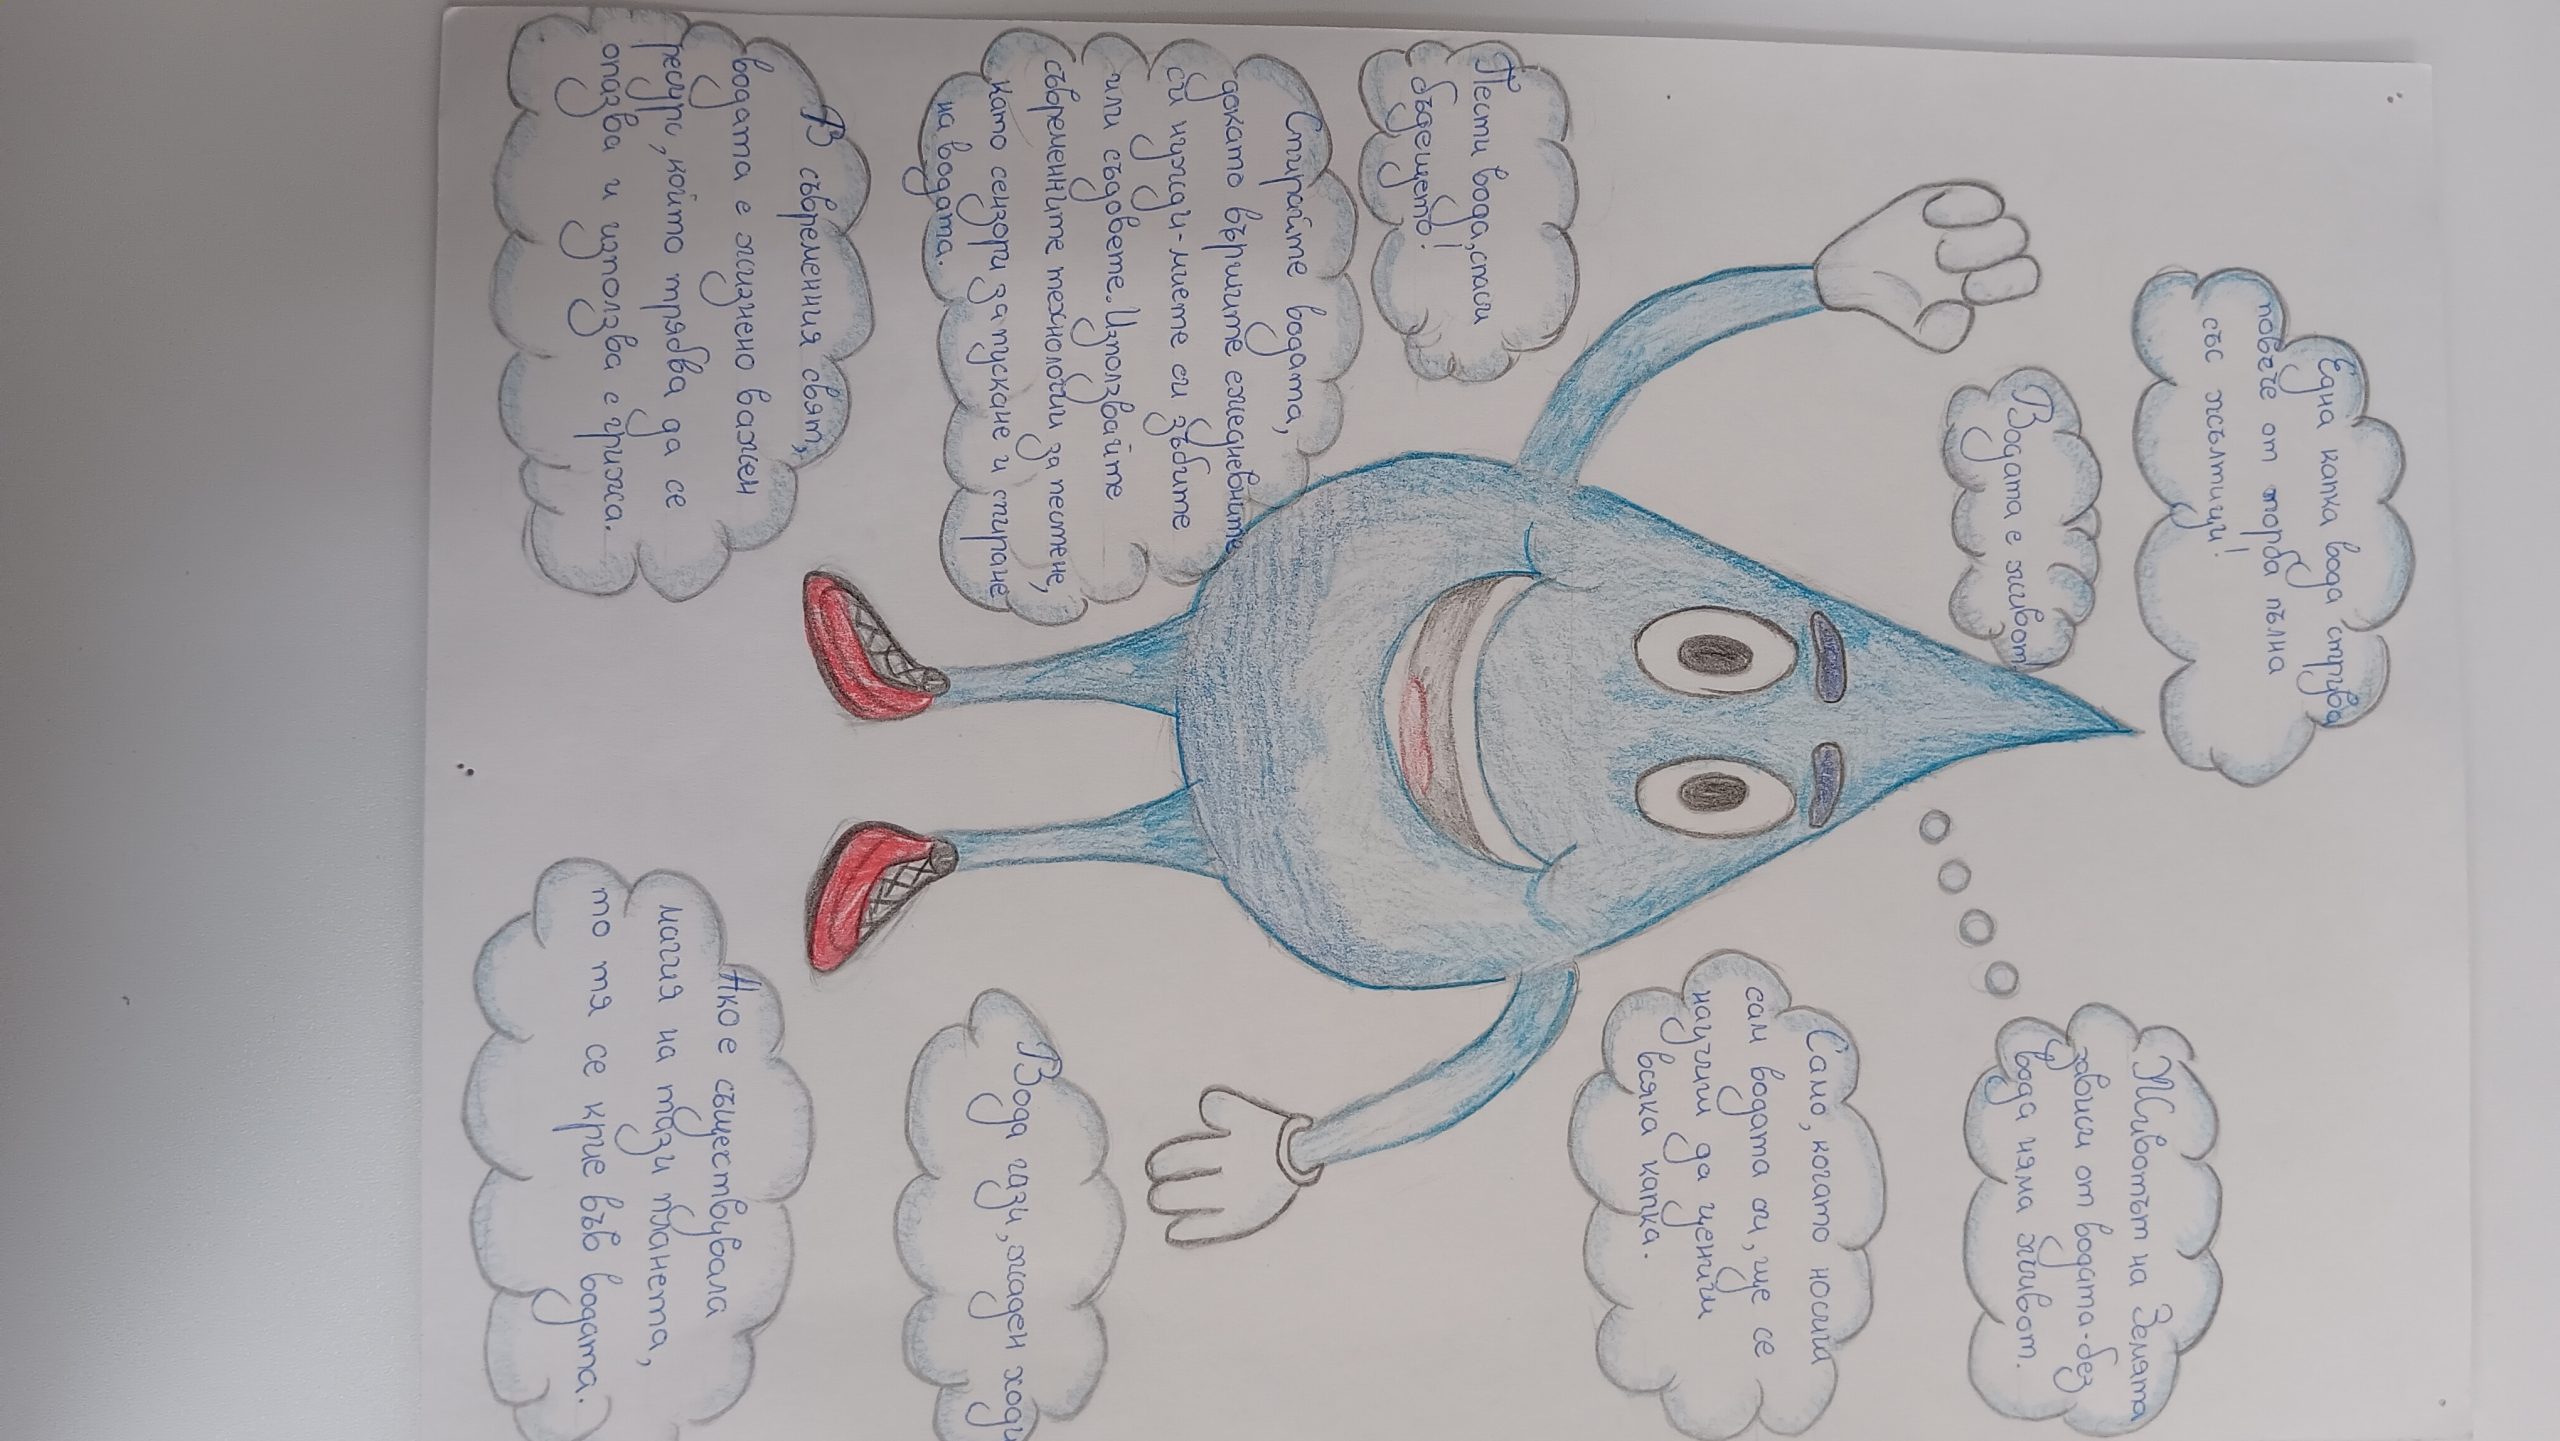 Една капка вода струва
повече от торба пълна
със жълтици!
Водата е живот
Пести вода, спаси
бъдещето!
Спирайте водата,
докато вършите ежедневните
си нужди-миете си зъбите
или съдовете. Използвайте
съвременните технологии за пестене,
като сензори за пускане и спиране
на водата.
В съвременния свят,
водата е жизнено важен
ресурс, който трябва да се
опазва и използва с грижа.
Животът на Земята
зависи от водата-без
вода няма живот.
Само, когато носиш
сам водата си, ще се
научиш да цениш
всяка капка.
Вода гази, жаден ходи
Ако е съществувала
магия на тази планета,
то тя се крие във водата.